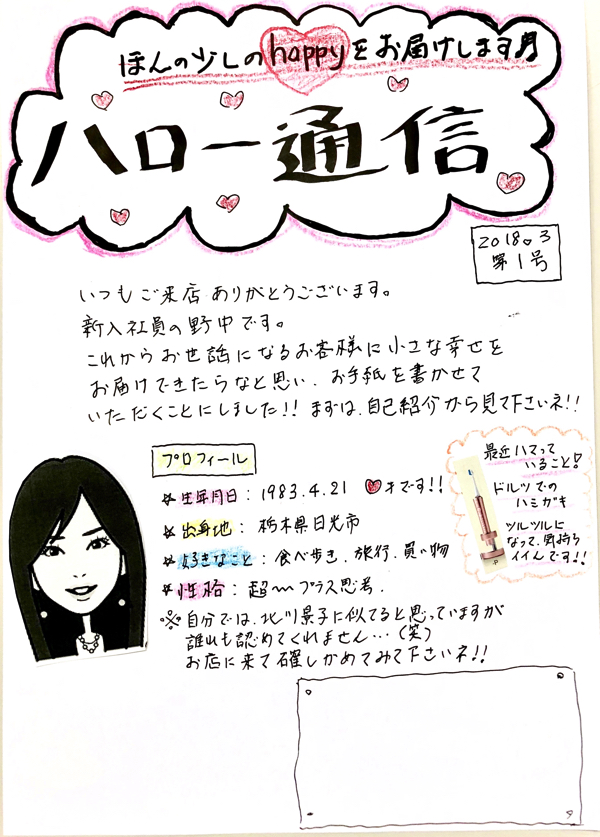 ほんの少しのhappyをお届けします♪
ハロー通信
2018.3
第1号
いつもご来店ありがとうございます。
新入社員の野中です。
これからお世話になるお客様に小さな幸せを
お届けできたらなと思い、お手紙を書かせて
いただくことにしました!! まずは、自己紹介から見て下さいネ!!
プロフィール
☆生年月日：1983.4.21 ♥才です!!
☆出身地：栃木県日光市
☆好きなこと：食べ歩き、旅行、買い物
☆性格：超〜プラス思考。
※自分では、北川景子に似てると思っていますが
誰れも認めてくれません…(笑)
お店に来て確しかめてみて下さいネ!!
最近ハマって
いること!
ドルツでの
ハミガキ
ツルツルに
なって、気持ち
イイんです!!